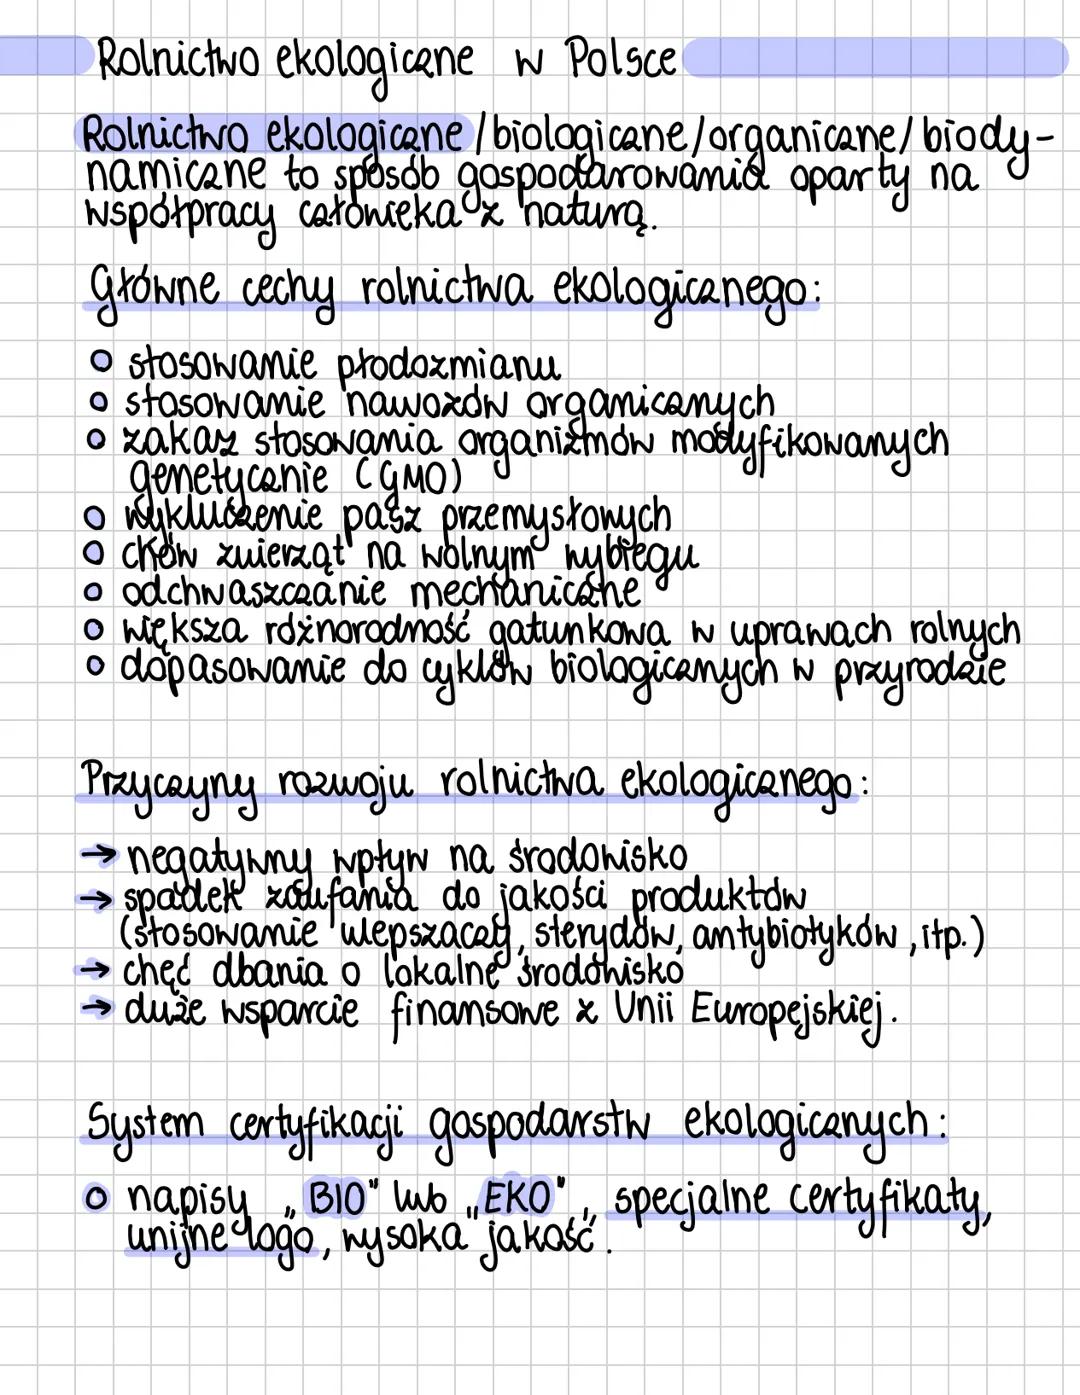 Rolnictwo ekologiczne w Polsce
Rolnictwo ekologiczne/biologiczne/organiczne/biody-
namiczne to sposób gospodarowania oparty na
współpracy człowieka z naturą.
Główne cechy rolnictwa ekologicznego:
○ stosowanie płodozmianu
○ stosowanie nawozów organicznych
○ zakaz stosowania organizmów modyfikowanych
genetycznie (GMO)
○ wykluczenie pasz przemysłowych
○ chów zwierząt na wolnym wybiegu
○ odchwaszczanie mechaniczne
○ większa różnorodność gatunkowa w uprawach rolnych
○ dopasowanie do cyklów biologicznych w przyrodzie
Przyczyny rozwoju rolnictwa ekologicznego:
→ negatywny wpływ na środowisko
→ spadek zaufania do jakości produktów
(stosowanie ulepszaczy, sterydów, antybiotyków, itp.)
→ chęć dbania o lokalne środowisko
→ duże wsparcie finansowe z Unii Europejskiej.
System certyfikacji gospodarstw ekologicznych:
○ napisy „BIO" lub „EKO", specjalne certyfikaty,
unijne logo, wysoka jakość.